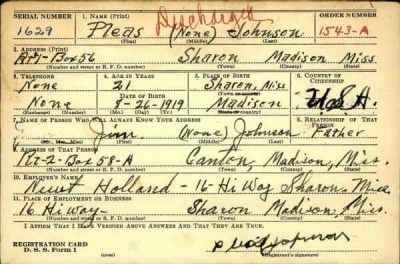 SERIAL NUMBER 1. NAME (Print) ORDER NUMBER
Discharged
1629 Pleas (None) Johnson 1543-A
(First) (Middle) (Last)
2. ADDRESS (Print)
Rt-1-Box 56 Sharon Madison Miss
(Number and street or R. F. D. number) (Town) (County) (State)
3. TELEPHONE 4. AGE IN YEARS 5. PLACE OF BIRTH 6. COUNTRY OF CITIZENSHIP
None 21 Sharon, Miss
DATE OF BIRTH (Town or county)
None 8-26-1919 Madison U.S.A.
(Exchange) (Number) (Mo.) (Day) (Yr.) (State or country)
7. NAME OF PERSON WHO WILL ALWAYS KNOW YOUR ADDRESS 8. RELATIONSHIP OF THAT PERSON
Jim (None) Johnson Father
(Mr., Mrs., Miss) (First) (Middle) (Last)
9. ADDRESS OF THAT PERSON
Rt-2-Box 58-A Canton, Madison, Miss.
(Number and street or R. F. D. number) (Town) (County) (State)
10. EMPLOYER'S NAME
Newt Holland - 16 Hi Way Sharon, Miss
11. PLACE OF EMPLOYMENT OR BUSINESS
16 Hiway- Sharon Madison, Miss.
(Number and street or R. F. D. number) (Town) (County) (State)
I AFFIRM THAT I HAVE VERIFIED ABOVE ANSWERS AND THAT THEY ARE TRUE.
REGISTRATION CARD
D. S. S. Form 1 Johnson